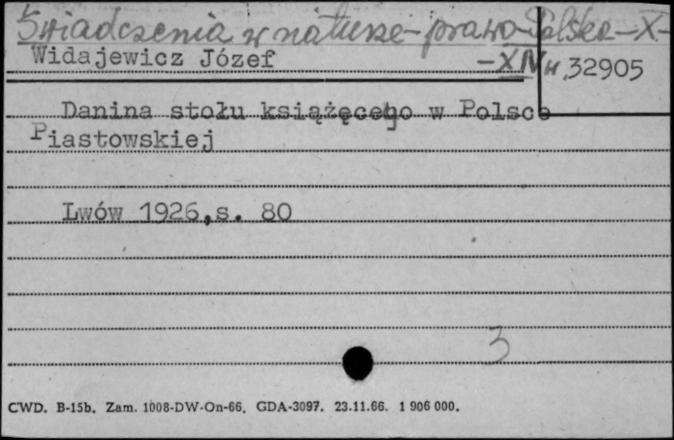 Świadczenia w naturze - prawo - Polska - X -
Widajewicz Józef
- XIV w.
32905
Danina stołu książęcego w Polsce
Piastowskiej
Lwów 1926,s. 80
3
CWD. B-15b. Zam. 1008-DW-On-66. GDA-3097. 23.11.66. 1 906 000.